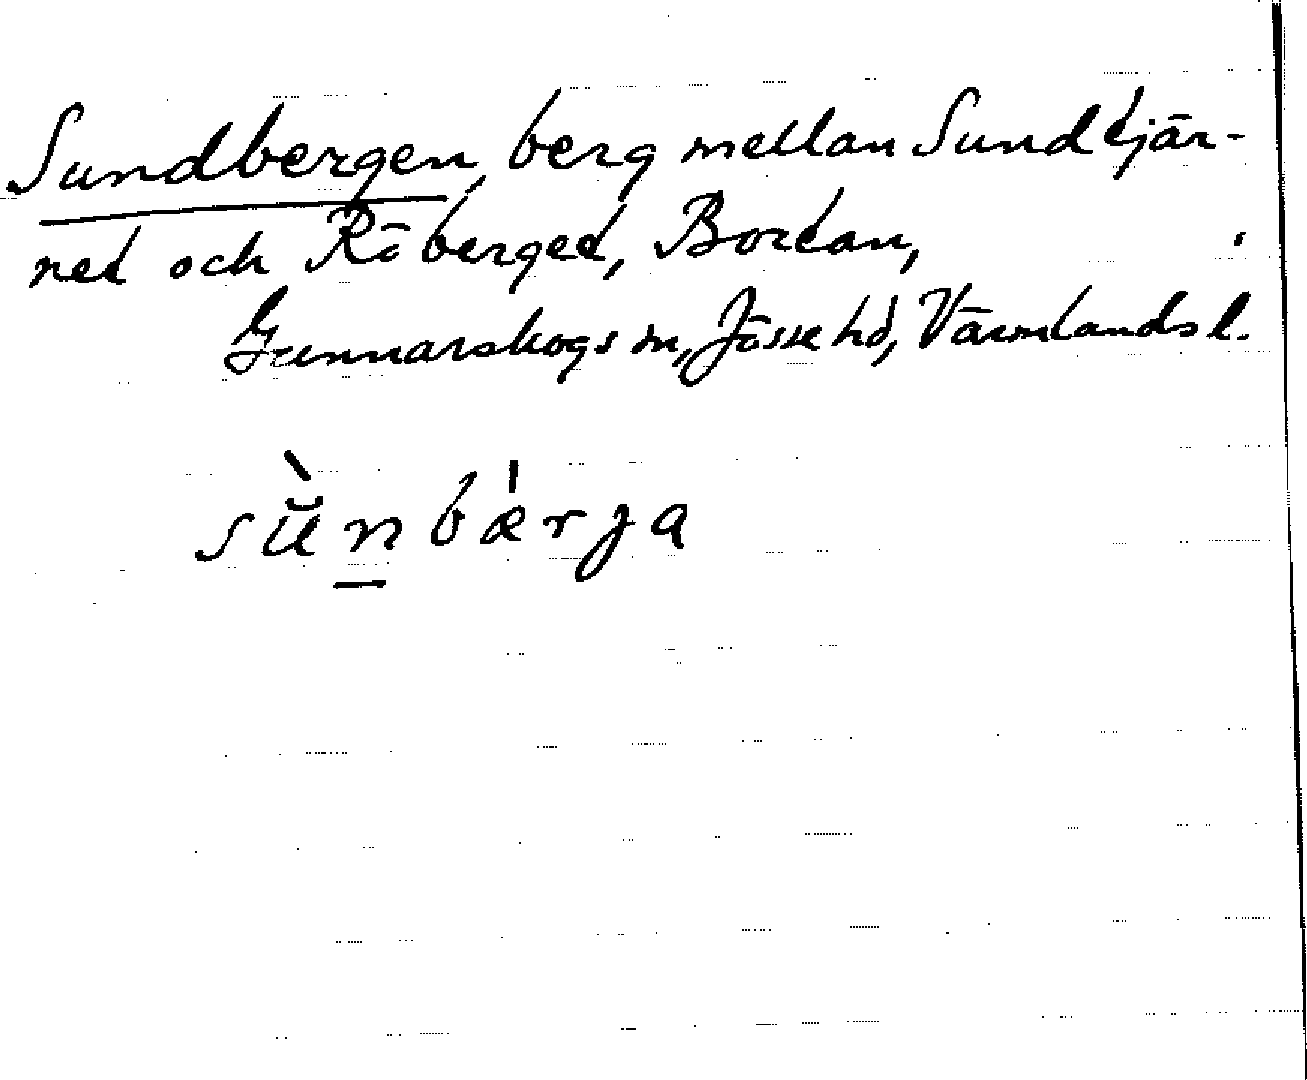 Sundbergen, berg mellan Sundtjär-
net och Röberget, Bortan,
Gunnarskogs sn, Jösse hd, Värmlands l.
sùnbǽrja